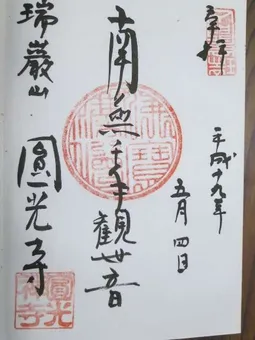 奉拝
平成十九年
五月四日
南無千手観世音
瑞巖山
圓光寺
佛法僧寶
圓光寺